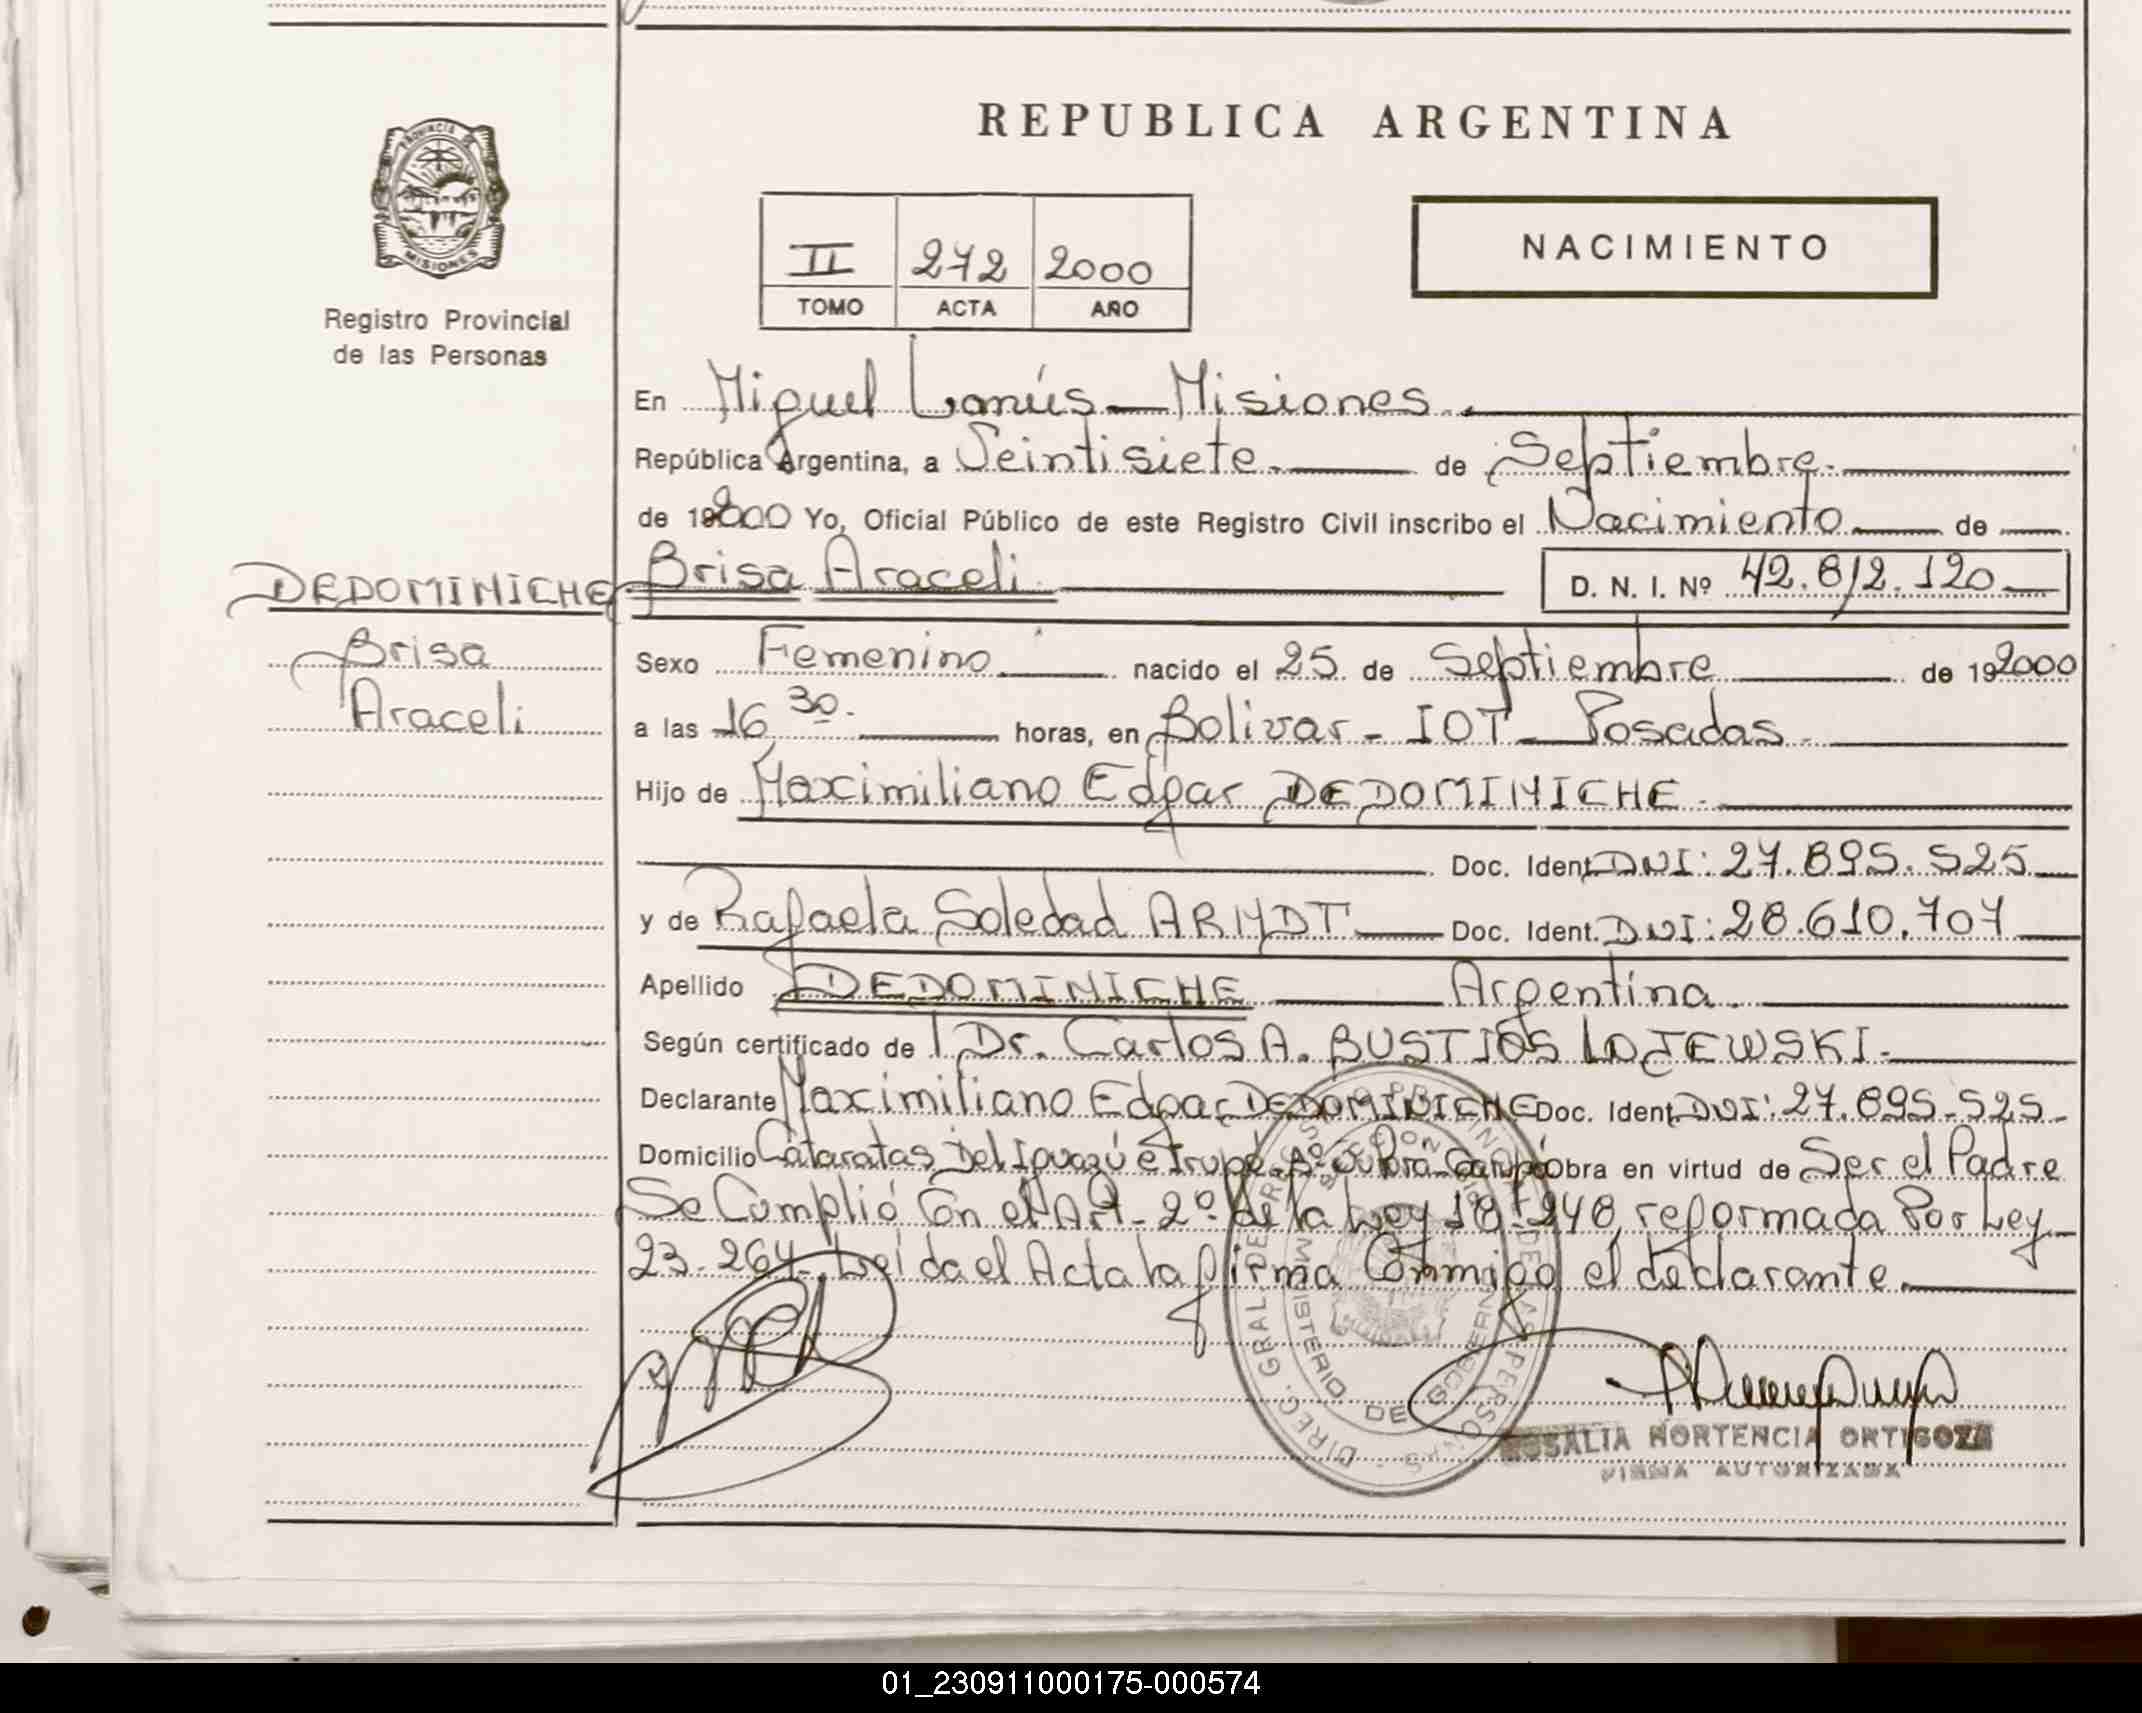 REPUBLICA ARGENTINA
PROVINCIA DE
MISIONES
Registro Provincial
de las Personas
II 272 2000
TOMO ACTA AÑO
NACIMIENTO
En Miguel Lanús - Misiones.
República Argentina, a Veintisiete de Septiembre
de 2000 Yo, Oficial Público de este Registro Civil inscribo el Nacimiento de
DEDOMINICHE Brisa Araceli D. N. I. Nº 42.812.120
Brisa
Araceli
Sexo Femenino nacido el 25 de Septiembre de 19 2000
a las 16 30 horas, en Bolivar - IOT - Posadas
Hijo de Maximiliano Edgar DEDOMINICHE
Doc. Ident. DNI: 27.895.525
y de Rafaela Soledad ARNDT Doc. Ident. DNI: 28.610.707
Apellido DEDOMINICHE Argentina.
Según certificado de Dr. Carlos A. BUSTIOS LOJEWSKI
Declarante Maximiliano Edgar DEDOMINICHE Doc. Ident. DNI: 27.895.525
Domicilio Cataratas Del Iguazú e Obra en virtud de Ser el Padre
Se Cumplió Con el Art. 2º de la Ley 18.248, reformada Por Ley
23.264. Leída el Acta la firma Conmigo el declarante.
DIREC. GRAL. DE REGISTRO PROVINCIAL DE LAS PERSONAS
MINISTERIO DE GOBIERNO
ROSALIA HORTENCIA ORTIGOZA
FIRMA AUTORIZADA
01_230911000175-000574